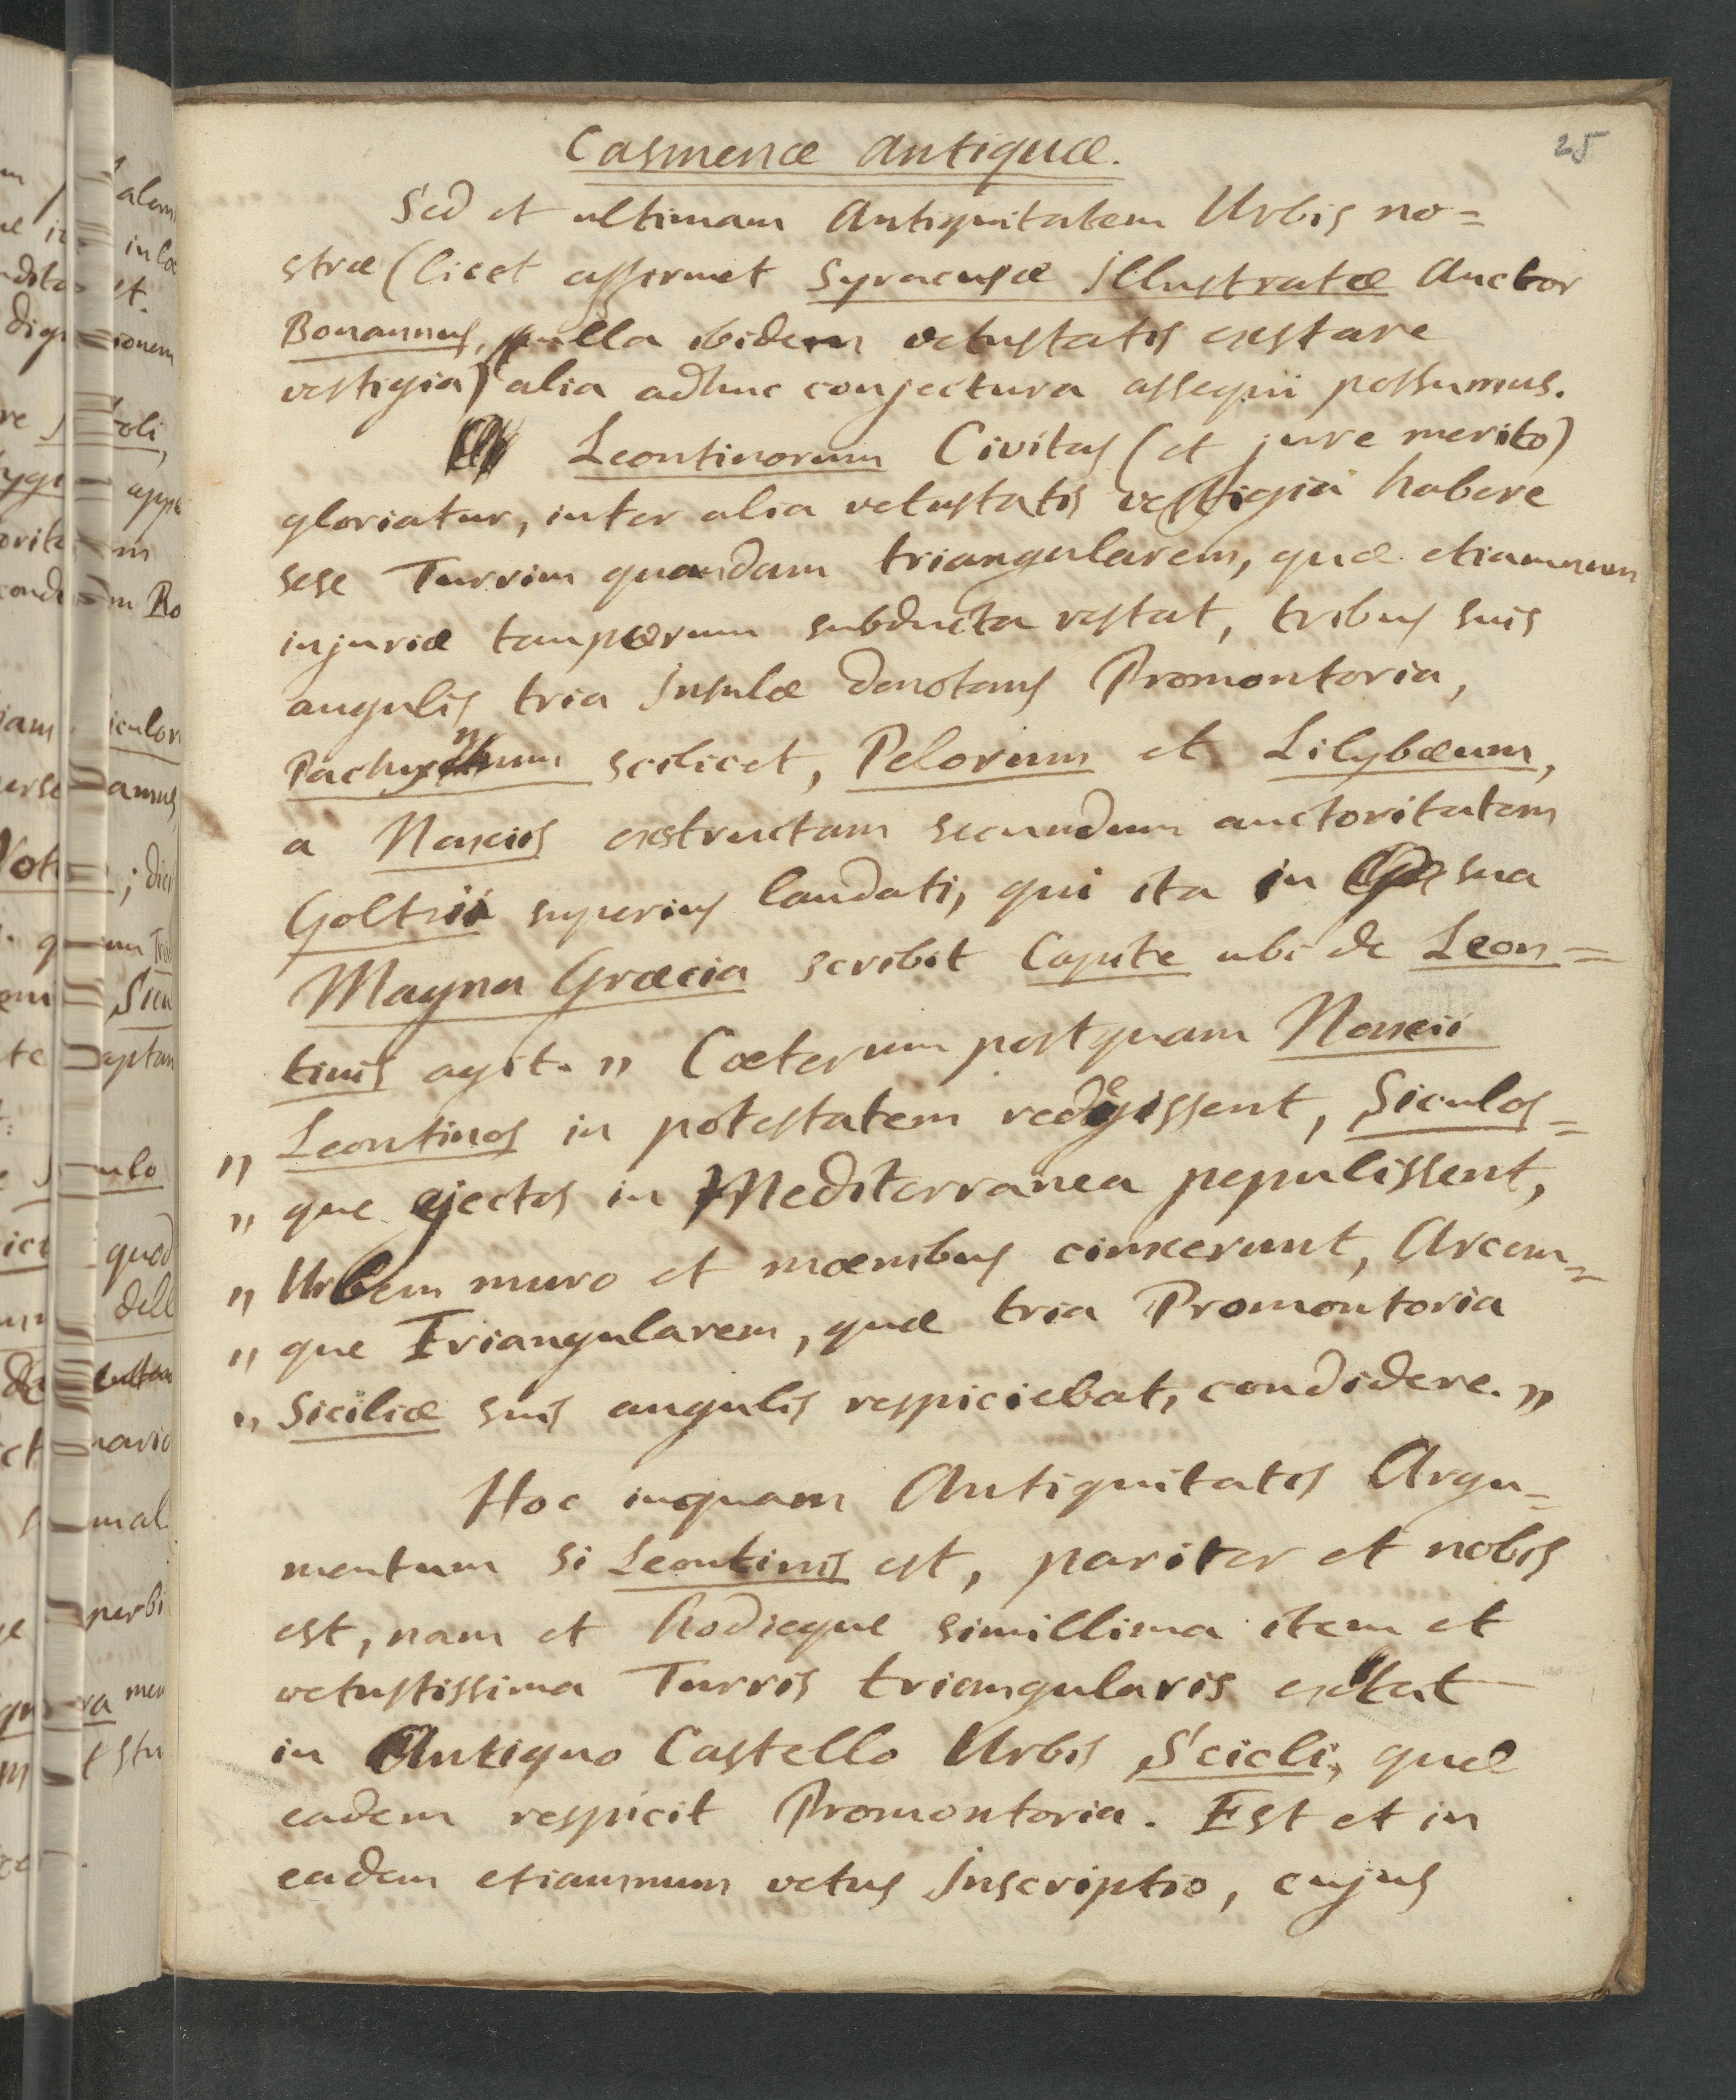 25
Casmenæ Antiquæ.
Sed et ultimam Antiquitatem Urbis no=
stræ (licet affirmet Syracusæ Illustratæ Auctor
Bonannus, nulla ibidem vetustatis exstare
vestigia) alia adhuc conjectura assequi possumus.
Leontinorum Civitas (et jure merito)
gloriatur, inter alia vetustatis vestigia habere
sese Turrim quandam triangularem, quæ etiamnum
injuriæ temporum subducta restat, tribus suis
angulis tria Insulæ denotans Promontoria,
Pachynum scilicet, Pelorum et Lilybæum,
a Naxiis exstructam secundum auctoritatem
Goltzii superius laudati, qui ita in sua
Magna Græcia scribit Capite ubi de Leon=
tinis agit. „ Cæterum postquam Naxii
„ Leontinos in potestatem redegissent, Siculos=
„ que ejectos in Mediterranea pepulissent,
„ Urbem muro et mœnibus cinxerunt, Arcem=
„ que Triangularem, quæ tria Promontoria
„ Siciliæ suis angulis respiciebat, condidere. „
Hoc inquam Antiquitatis Argu=
mentum si Leontinis est, pariter et nobis
est, nam et hodieque simillima item et
vetustissima Turris triangularis extat
in Antiquo Castello Urbis Scicli, quæ
eadem respicit Promontoria. Est et in
eadem etiamnum vetus Inscriptio, cujus